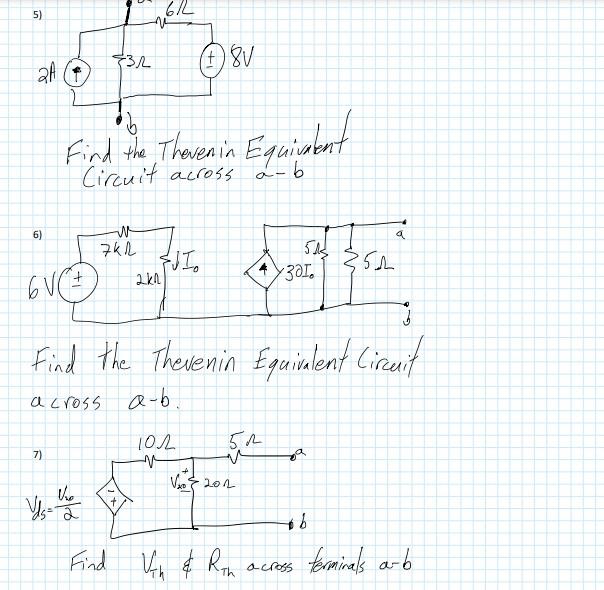 5)
6Ω
2A
3Ω
+
8V
b
Find the Thevenin Equivalent
Circuit across a-b
6)
7kΩ
6V
+
2kΩ
I₀
30I₀
5Ω
5Ω
a
b
Find the Thevenin Equivalent Circuit
across a-b.
7)
10Ω
5Ω
a
20Ω
+
b
Find V_Th & R_Th across terminals a-b